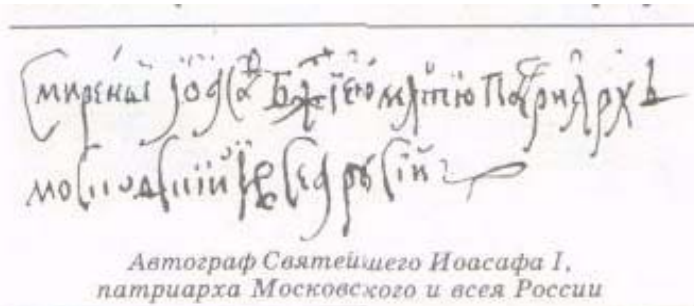 Смиреныі Іоасаѳ Бж҃іею млⷭ҇тію Патриархъ
московскиїй и всеа русіи
Автограф Святейшего Иоасафа I,
патриарха Московского и всея России